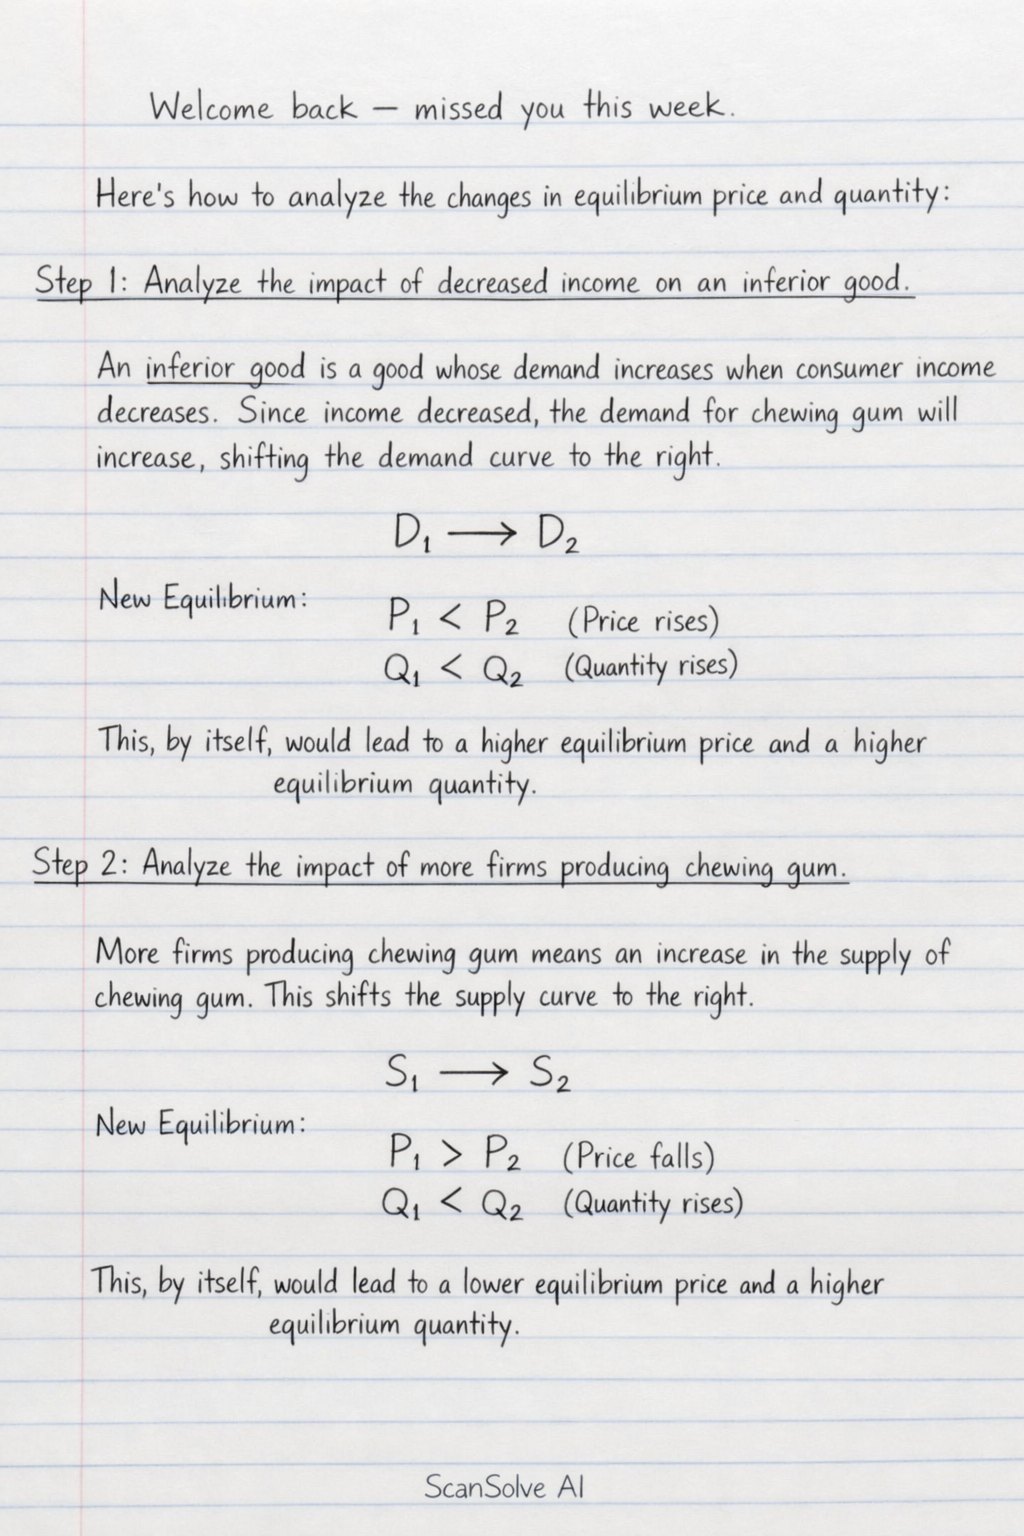 Welcome back — missed you this week.
Here's how to analyze the changes in equilibrium price and quantity:
Step 1: Analyze the impact of decreased income on an inferior good.
An inferior good is a good whose demand increases when consumer income
decreases. Since income decreased, the demand for chewing gum will
increase, shifting the demand curve to the right.
D₁ ⟶ D₂
New Equilibrium:
P₁ < P₂ (Price rises)
Q₁ < Q₂ (Quantity rises)
This, by itself, would lead to a higher equilibrium price and a higher
equilibrium quantity.
Step 2: Analyze the impact of more firms producing chewing gum.
More firms producing chewing gum means an increase in the supply of
chewing gum. This shifts the supply curve to the right.
S₁ ⟶ S₂
New Equilibrium:
P₁ > P₂ (Price falls)
Q₁ < Q₂ (Quantity rises)
This, by itself, would lead to a lower equilibrium price and a higher
equilibrium quantity.
ScanSolve AI